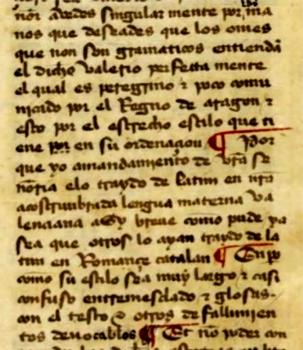 ñor auedes singular mente por ma
nos que deseades que los omes
que non son gramaticos entiendã
el dicho valerio perfecta mente
el qual es peregrino & poco comu
nicado por el Regno de aragon &
esto por el estrecho estilo que ti
ene por en su ordenaçion ¶ Por
que yo amandamiento de vr̃a se
ñoria elo traydo de latim en nr̃a
acostumbrada lengua materna va
lenciana assy breue como pude ya
sea que otros lo ayan traydo de la
tim en Romançe catalan ¶ En po
como su estilo sea muy largo & casi
confuso entremesclado & glosas
con el testo & otros de fallimien
tos de vocablos ¶ Et no poder con